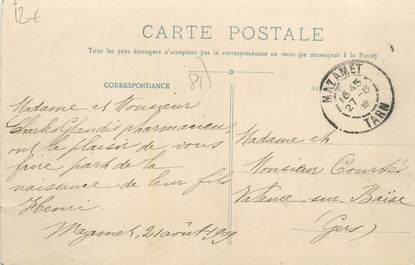 12€
CARTE POSTALE
Tous les pays étrangers n'acceptent pas la correspondance au recto (se renseigner à la Poste)
CORRESPONDANCE
81)
MAZAMET
16 45
27 - 8
TARN
Madame et Monsieur
Charles pharmacien,
ont le plaisir de vous
faire part de la
naissance de leur fils
Henri
Mazamet, 21 août
Madame et
Monsieur Courtés
Valence-sur-Baïse
(Gers)